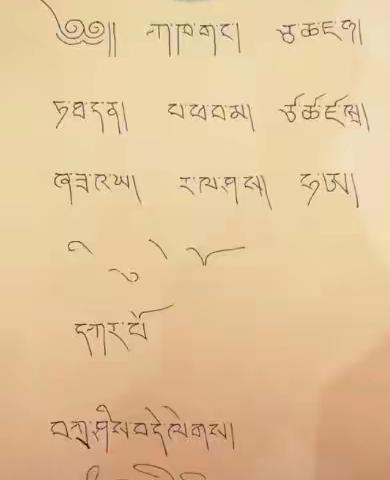 ༄༅།། ཀ་ཁ་ག་ང་། ཅ་ཆ་ཇ་ཉ།
ཏ་ཐ་ད་ན། པ་ཕ་བ་མ། ཙ་ཚ་ཛ་ཝ།
ཞ་ཟ་འ་ཡ། ར་ལ་ཤ་ས། ཧ་ཨ།
ི ུ ེ ོ
དཀར་པོ
བཀྲ་ཤིས་བདེ་ལེགས།